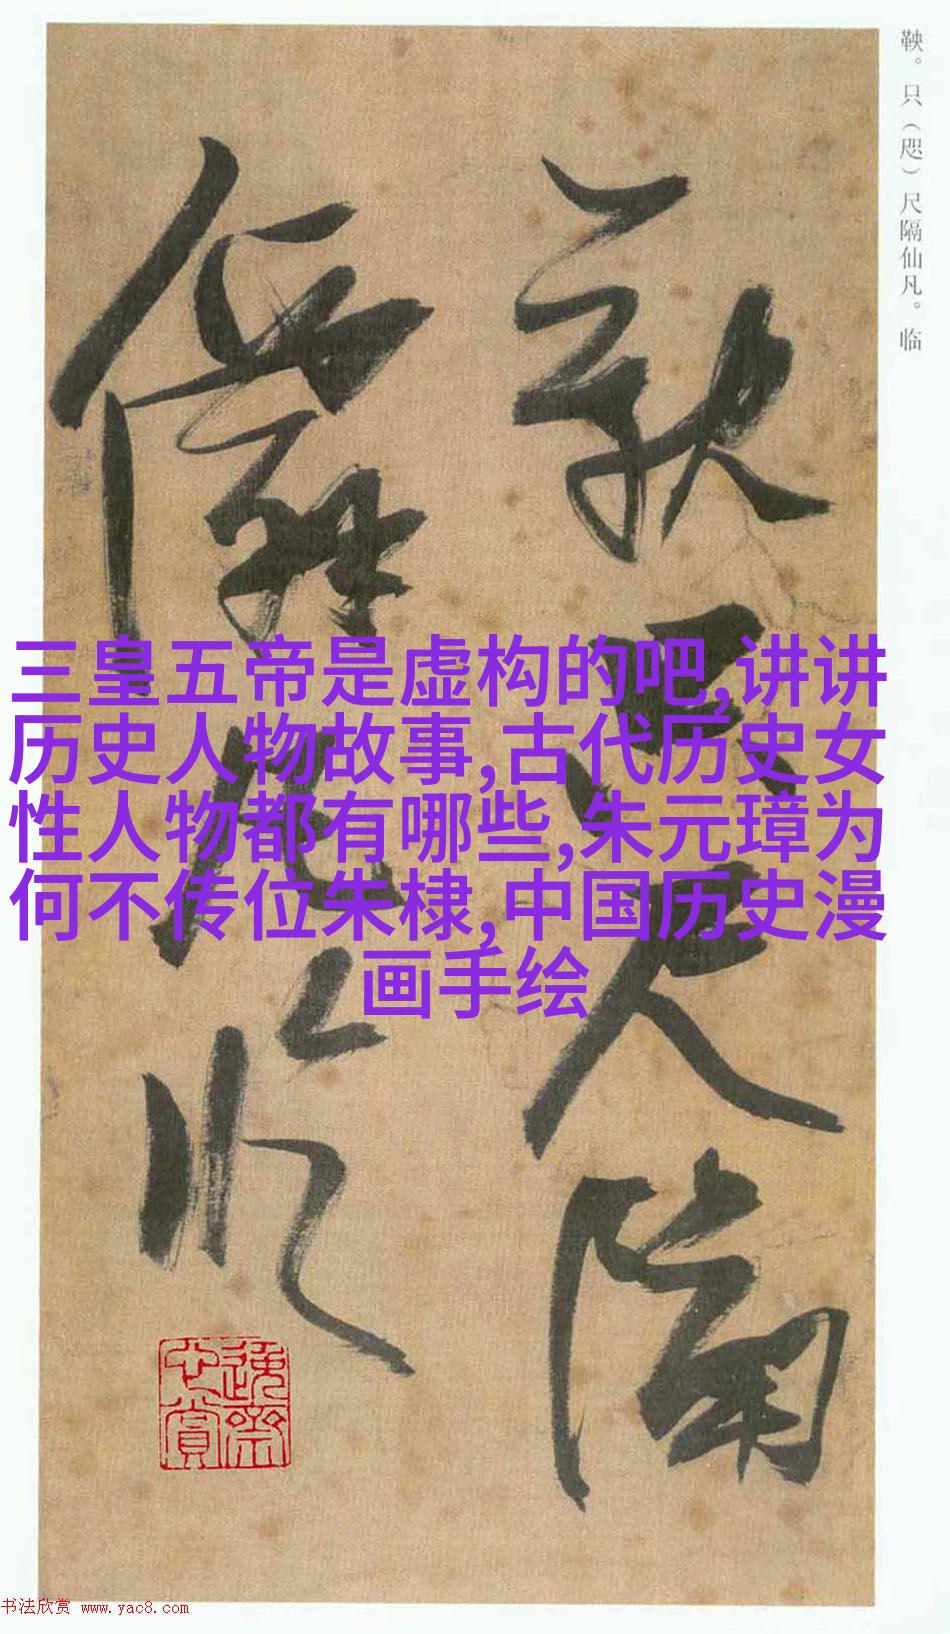 鞅。只（咫）尺隔仙凡。临
鞅只尺隔
僊凡临
三皇五帝是虚构的吧,讲讲
历史人物故事,古代历史女
性人物都有哪些,朱元璋为
何不传位朱棣,中国历史漫
画手绘
书法欣赏 www.yac8.com